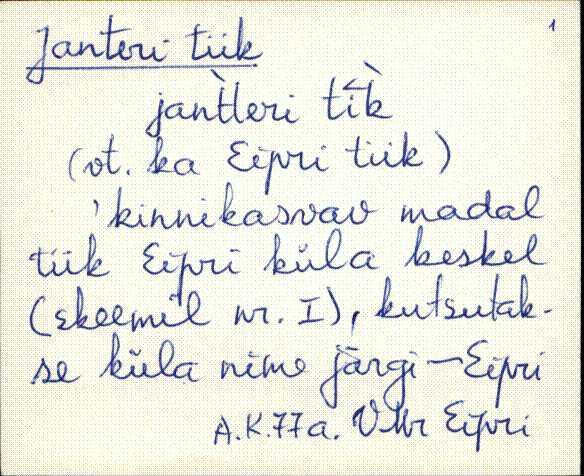 1
Janteri tiik
jaǹtleri tiì̭k
(vt. ka Eipri tiik)
'kinnikasvav madal
tiik Eipri küla keskel
(skeemil nr. I), kutsutak-
se küla nime järgi — Eipri
A.K.77a. VMr Eipri